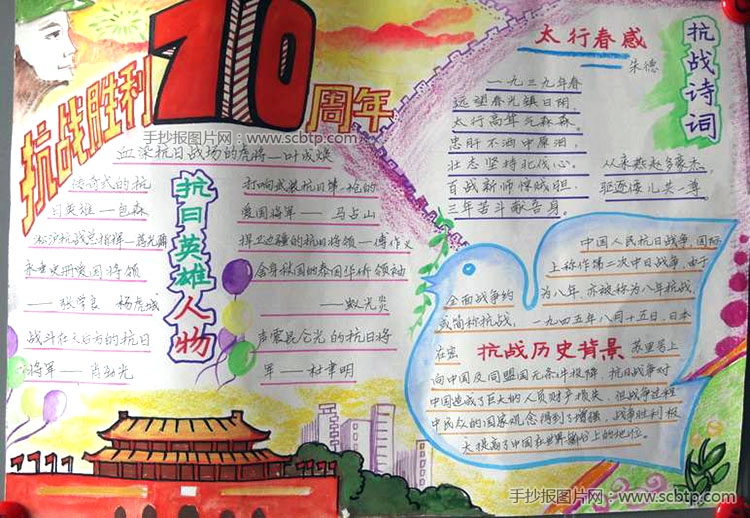 抗战胜利70周年
手抄报图片网：www.scbtp.com
血染抗日战场的虎将—叶成焕
传奇式的抗
日英雄—包森
淞沪抗战总指挥—蒋光鼐
永垂史册爱国将领
——张学良 杨虎城
战斗在天石方的抗日
将军——肖劲光
抗日英雄人物
打响武装抗日第一枪的
爱国将军——马占山
捍卫边疆的抗日将领—傅作义
舍身救国的泰国华侨领袖
——蚁光炎
声震昆仑光的抗日将
军——杜聿明
太行春感
朱德
抗战诗词
一九三九年春
远望春光镇日阴，
太行高耸气森森。
忠肝不洒中原泪，
壮志坚持北伐心。
百战新师惊贼胆，
三年苦斗献吾身。
从来燕赵多豪杰，
驱逐倭儿共一尊。
中国人民抗日战争，国际
上称作第二次中日战争，由于
全面战争约为八年，亦被称为八年抗战，
或简称抗战，一九四五年八月十五日，日本
在密苏里号上
抗战历史背景
向中国及同盟国无条件投降，抗日战争对
中国造成了巨大的人员财产损失，但战争过程
中民众的国家观念得到了增强，战争胜利极
大提高了中国在世界舞台上的地位。
手抄报图片网：www.scbtp.com